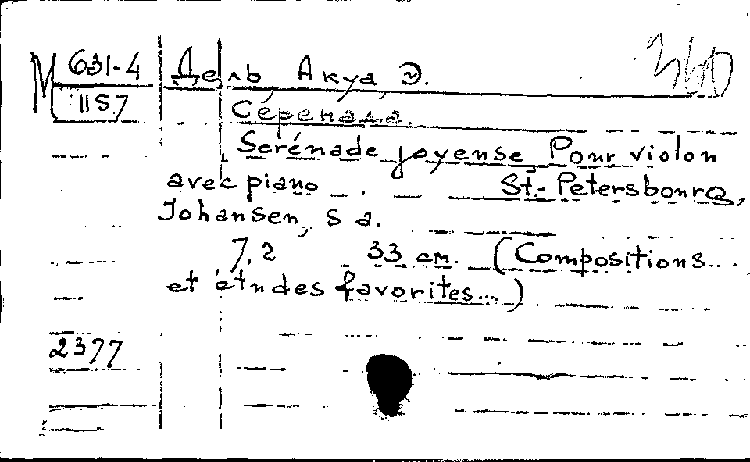 М 631-4 Дель Акуа, Э. 360
1157 Серенада.
Serénade joyense Pour violon
avec piano. St.-Petersbourg,
Johansen, s a.
7, 2 33 см. (Compositions...
et études favorites...)
2377